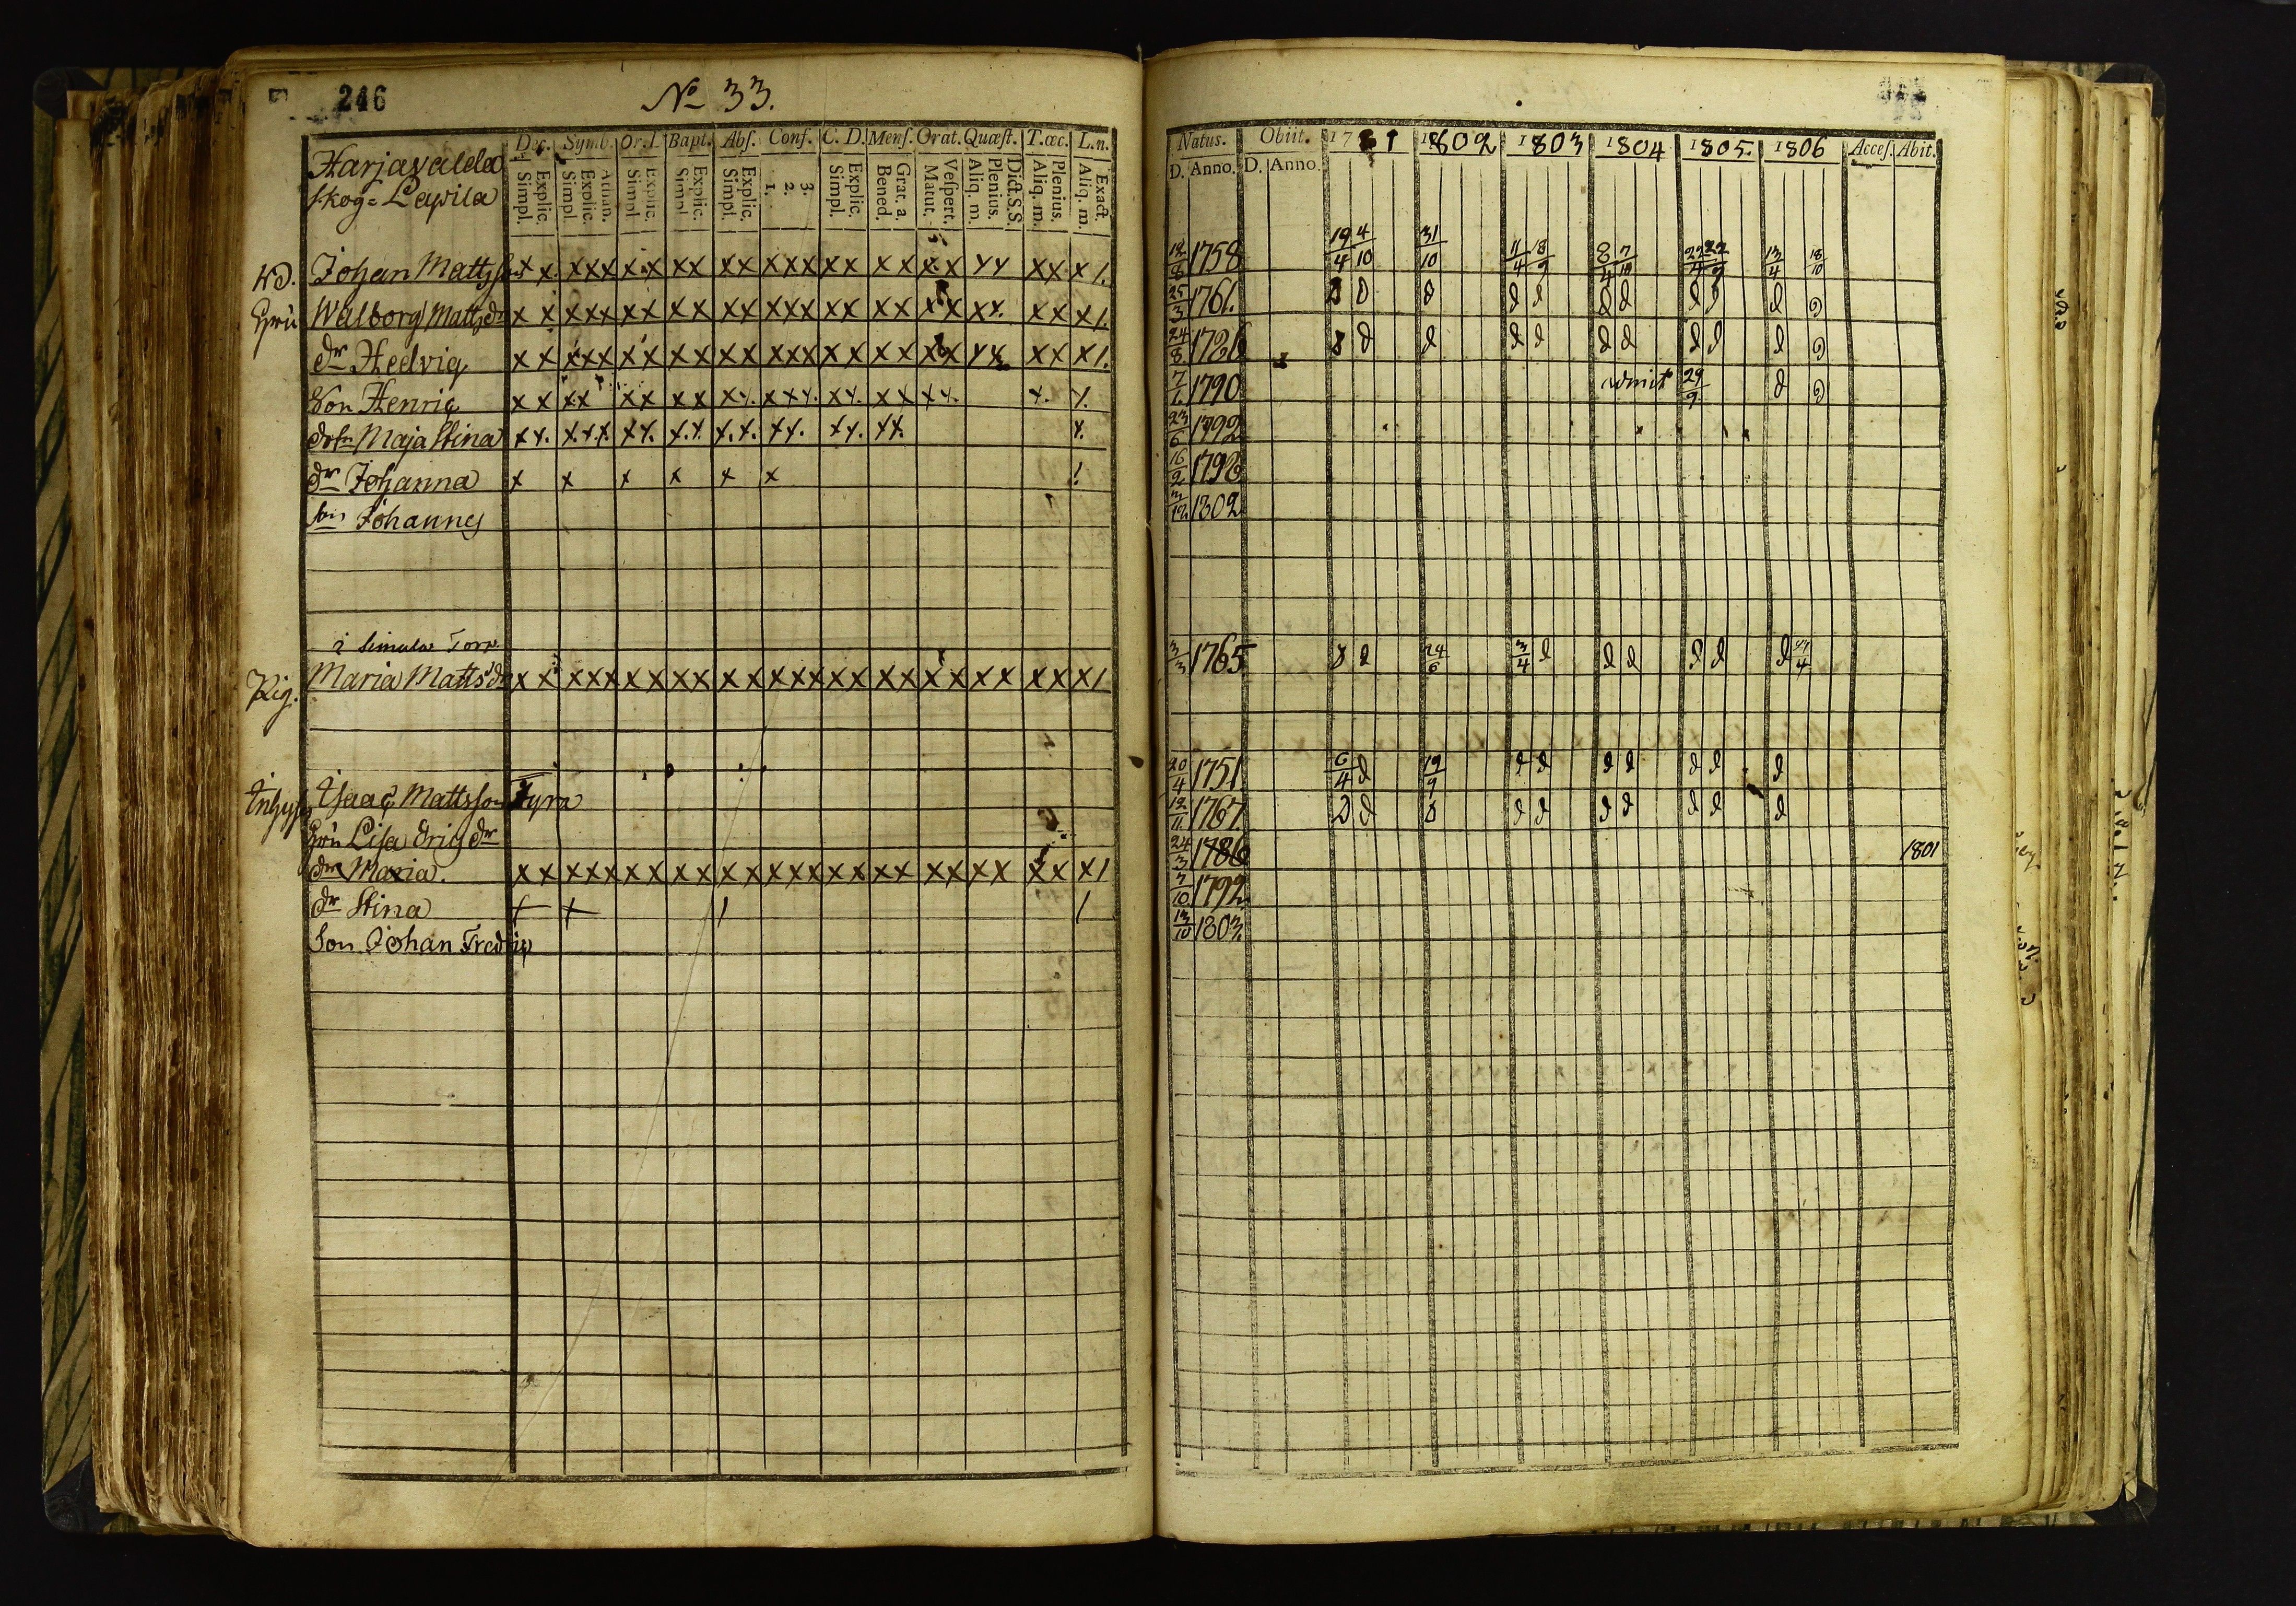 246
No 33.
Harjavalda
skog = Lapila
Dec. Symb. Or.d. Bapt. Abſ. Conf. C. D. Menſ. Orat. Quæſt. T.œc. L.n.
Explic. Simpl. Athan. Explic. Simpl. Explic. Simpl. Explic. Simpl. Explic. Simpl. 3. 2. 1. Explic. Simpl. Grat. a. Bened. Veſpert. Matut. Dict.S.S. Plenius. Aliq. m. Plenius. Aliq. m. Exact. Aliq. m.
Johan Mattsson x x xxx x x xx xx xxx xx x x x x xx xx x 1.
Hru Walborg Matsdr x x xxx xx xx xx xxx xx xx xx xx. xx x1.
dr Hedvig x x xxx xx xx xx xxx xx xx xx xx xx x1.
Son Henric x x xx xx xx xx. xxx. xx. xx xx. x. 1.
dotr Maja Stina xx. xxx. xx. x.x. x.x. xx. xx. xx. x.
dr Johanna x x x x x x 1
son Johannes
i Simula Torp.
Pig. Maria Mattsdr x x xxx xx xx xx xxx xx xx xx xx xx x1
Inhys Isaac Mattsson Fyra
Hru Lisa Ericsdr
dr Maria. x x xxx xx xx xx xxx xx xx xx xx xx x1
dr Stina
Son Johan Fredric
Natus. Obiit. 17 1 1802 1803 1804 1805. 1806 Acceſ. Abit.
D. Anno. D. Anno.
12/8 1758 19/4 4/10 31/10 11/4 18/9 8/4 7/10 22/4 22/9 13/4 18/10
25/3 1761. d d d d d d d d d d d
24/8 1786 d d d d d d d d d d d
7/1 1790 admit 29/9 d d
23/6 1792
16/2 1798
3/12 1802
3/3 1765 d d 24/6 3/4 d d d d d d
20/4 1751 6/4 d 19/9 d d d d d d d
12/11 1767. d d d d d d d d d d
24/3 1786 1801
7/10 1792
13/10 1803.